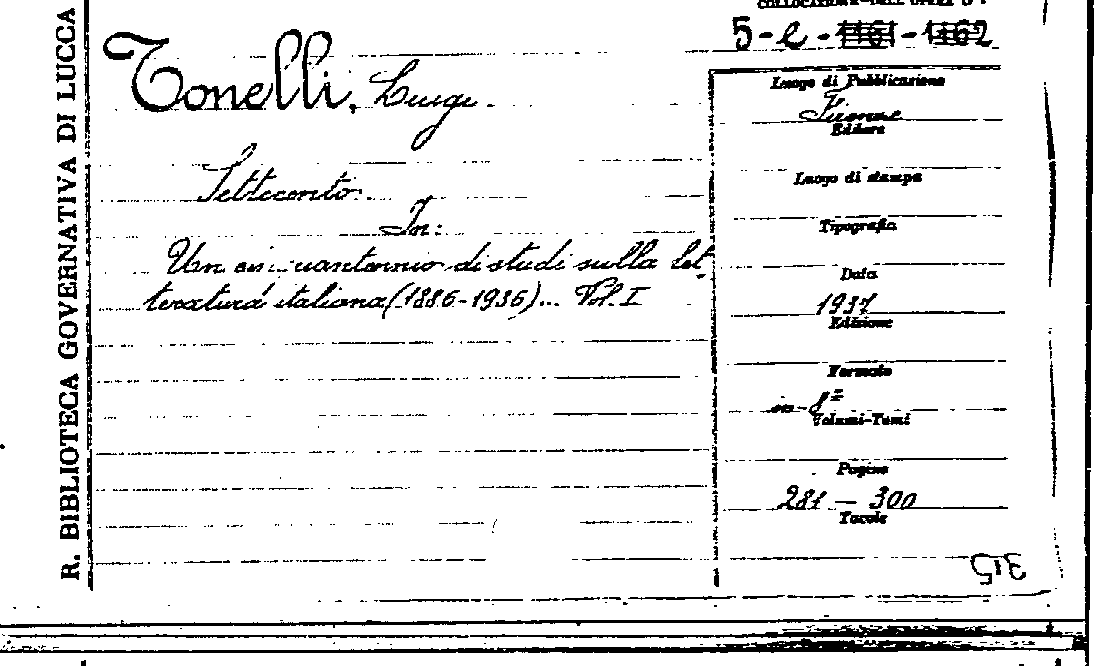 R. BIBLIOTECA GOVERNATIVA DI LUCCA
COLLOCAZIONE DELL'OPERA
5-e-1161-1162
Tonelli, Luigi.
Settecento.
In:
Un cinquantennio di studi sulla let
teratura italiana (1886-1936)... Vol. I
Luogo di Pubblicazione
Firenze
Editore
Luogo di stampa
Tipografia
Data
1937
Edizione
Formato
in-8º
Volumi-Tomi
Pagine
281 — 300
Tavole
315